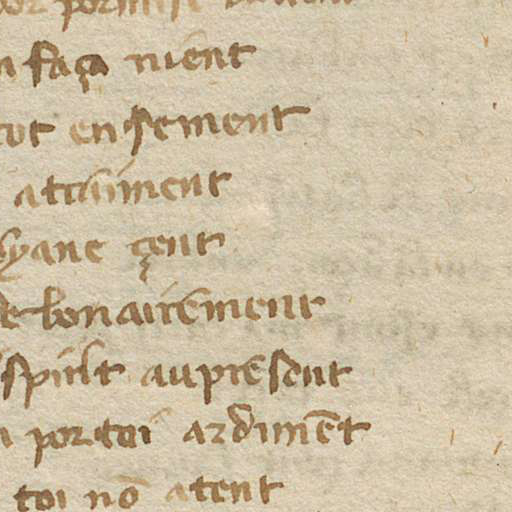 faça nient
tot ensement
atraiment
yane çent
de bonairement
spirlt au present
por toi ardimēt
toi nō atent